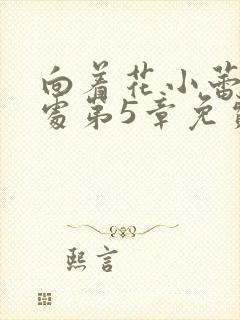 向着花小蕾
處第5章免費
熙言